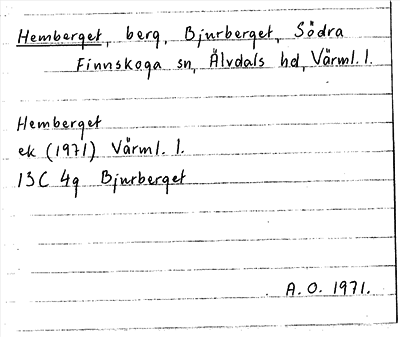 Hemberget, berg, Bjurberget, Södra
Finnskoga sn, Älvdals hd, Värml. l.
Hemberget
ek (1971) Värml. l.
13C 4g Bjurberget
A. O. 1971.